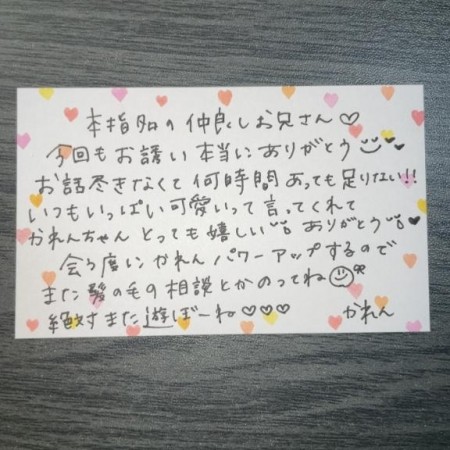 本指名の仲良しお兄さん♡
今回もお誘い本当にありがとう
お話尽きなくて何時間あっても足りない!!
いつもいっぱい可愛いって言ってくれて
かれんちゃんとっても嬉しい ありがとう
会う度にかれんパワーアップするので
また髪の毛の相談とかのってね
絶対また遊ぼーね♡♡♡ かれん